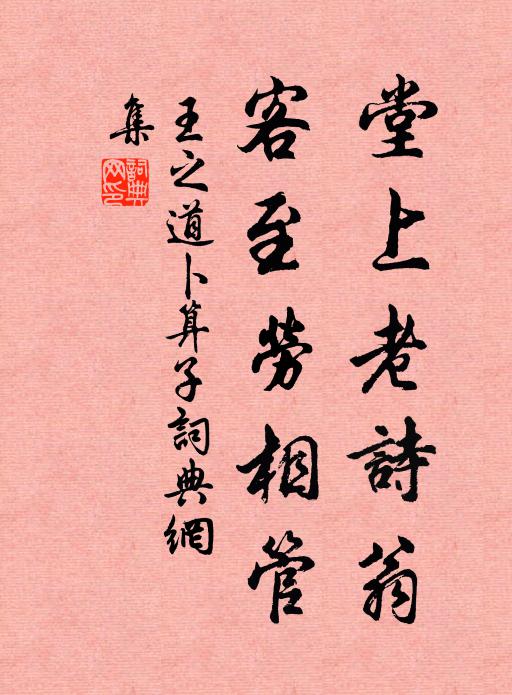 堂上老詩翁
客至勞相管
王之道卜算子詞典網
集
詞典
网印